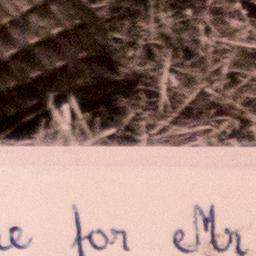 for Mr